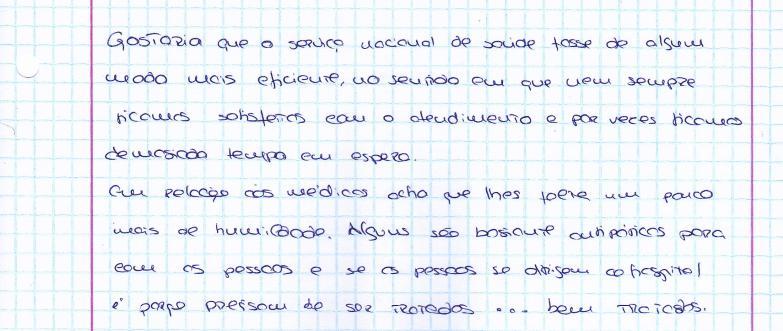 Gostaria que o serviço nacional de saúde fosse de algum
modo mais eficiente, no sentido em que nem sempre
ficamos satisfeitos com o atendimento e por vezes ficamos
demasiado tempo em espera.
Em relação aos médicos acho que lhes falta um pouco
mais de humildade. Alguns são bastante antipáticos para
com as pessoas e se as pessoas se dirigem ao hospital
é porque precisam de ser tratados ... bem tratados.